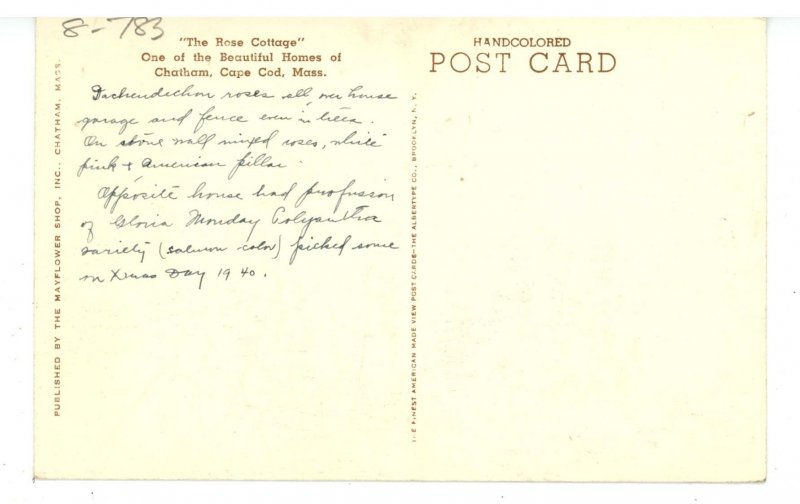 8-783
"The Rose Cottage"
One of the Beautiful Homes of
Chatham, Cape Cod, Mass.
HANDCOLORED
POST CARD
roses all over house
garage and fence even in trees.
On stone wall mixed roses, white
pink & American pillar.
Opposite house had profusion
of Gloria Monday Polyantha
variety (salmon color) picked some
on Xmas Day 1940.
PUBLISHED BY THE MAYFLOWER SHOP, INC., CHATHAM, MASS.
THE FINEST AMERICAN MADE VIEW POST CARDS-THE ALBERTYPE CO., BROOKLYN, N. Y.